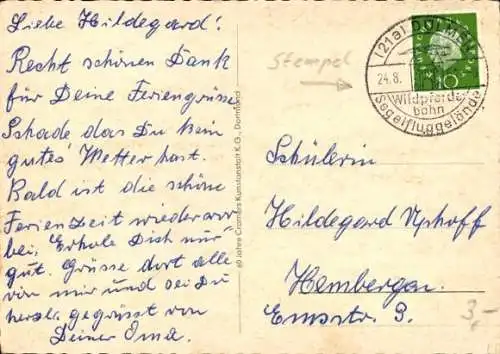 Liebe Hildegard!
Recht schönen Dank
für Deine Feriengrüsse
Schade das Du kein
gutes Wetter hast.
Bald ist die schöne
Ferienzeit wieder vor
bei, Erhole Dich nur
gut. Grüsse dort alle
von mir und sei Du
herzl. gegrüsst von
Deiner Oma.
60 Jahre Cramers Kunstanstalt K.G., Dortmund
Stempel
(21a) DÜLMEN
24.8.
Wildpferde-
bahn
Segelfluggelände
10
Schülerin
Hildegard Uphoff
Hembergen
Emsstr. 9.
3,-